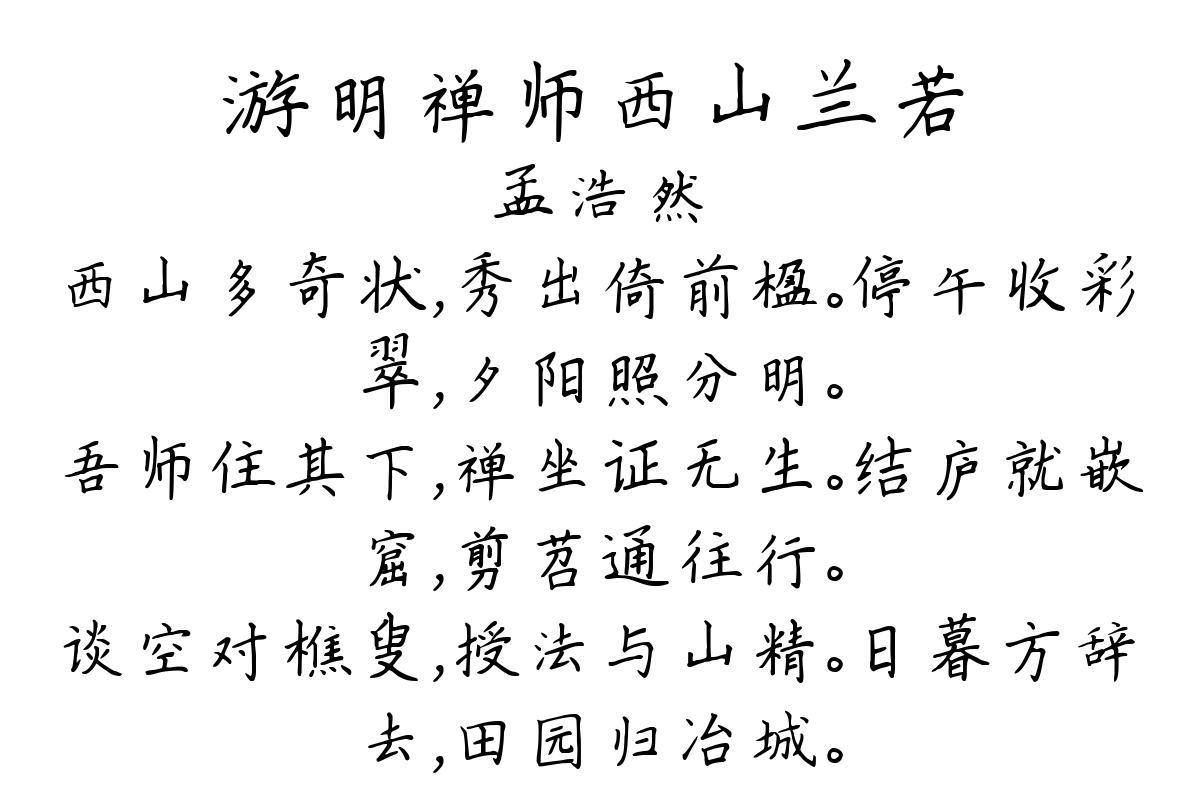 游明禅师西山兰若
孟浩然
西山多奇状,秀出倚前楹。停午收彩
翠,夕阳照分明。
吾师住其下,禅坐证无生。结庐就嵌
窟,剪苕通往行。
谈空对樵叟,授法与山精。日暮方辞
去,田园归冶城。